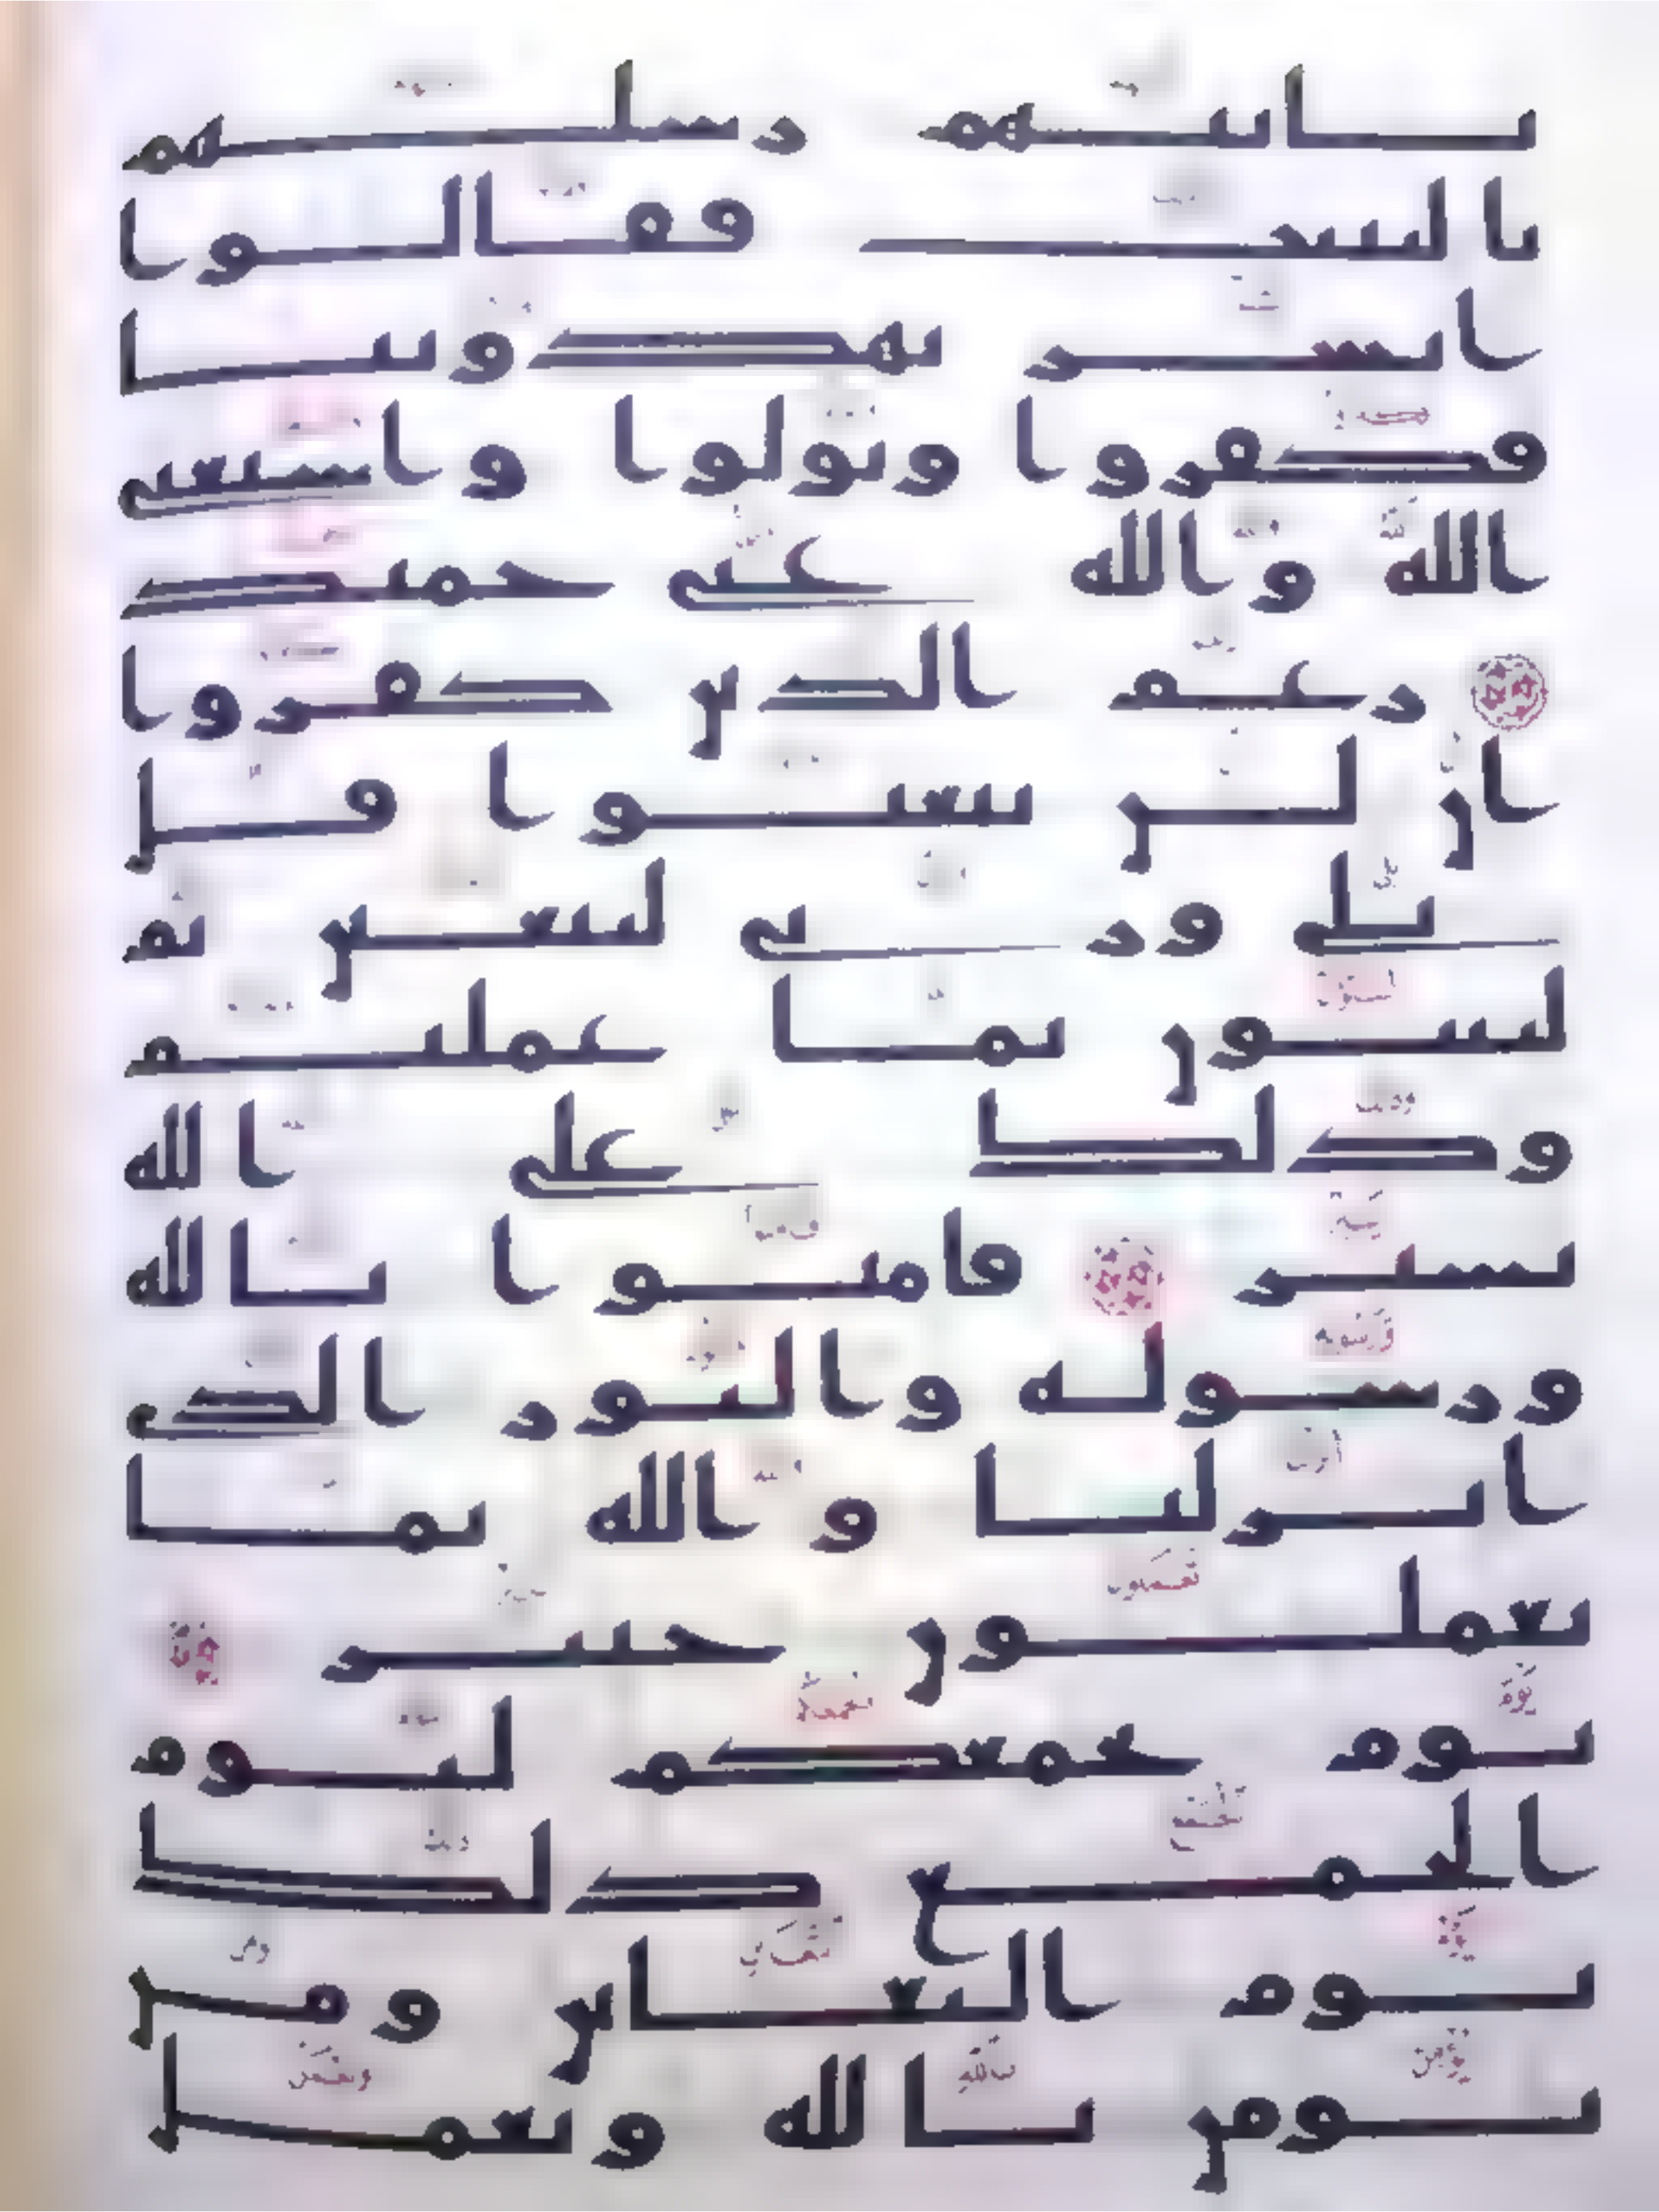 تاتيهم رسلهم
بالبينت فقالوا
ابشر يهدوننا
فكفروا وتولوا واستغنى
الله والله غني حميد
زعم الذين كفروا
ان لن يبعثوا قل
بلى وربي لتبعثن ثم
لتنبون بما عملتم
وذلك على الله
يسير فامنوا بالله
ورسوله والنور الذي
انزلنا والله بما
تعملون خبير
يوم يجمعكم ليوم
الجمع ذلك
يوم التغابن ومن
يومن بالله ويعمل